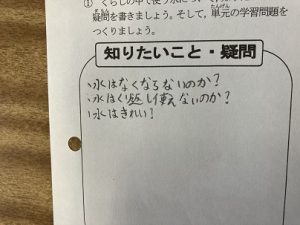 ① くらしの中で使う水について
疑問を書きましょう。そして，単元の学習問題を
つくりましょう。
知りたいこと・疑問
・水はなくならないのか?
・水はくり返し使えないのか?
・水はきれい!